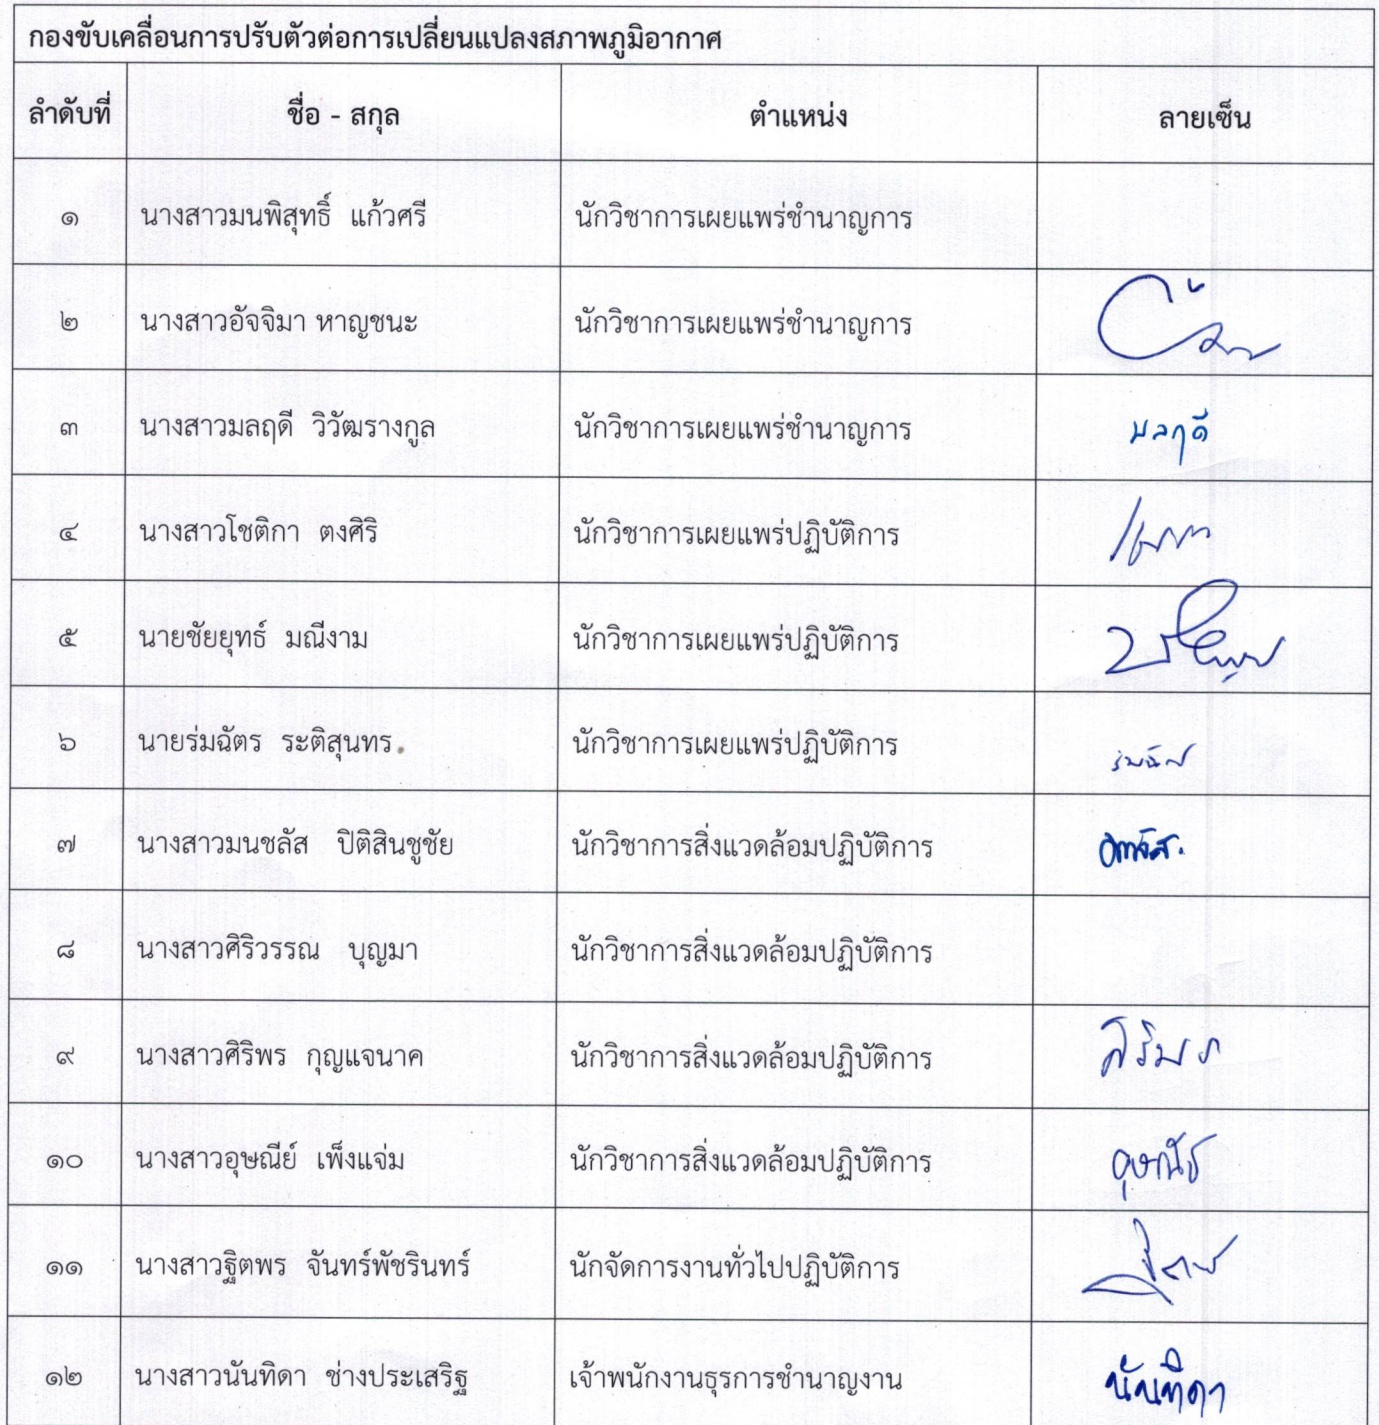 กองขับเคลื่อนการปรับตัวต่อการเปลี่ยนแปลงสภาพภูมิอากาศ
ลำดับที่ ชื่อ - สกุล ตำแหน่ง ลายเซ็น
๑ นางสาวมนพิสุทธิ์ แก้วศรี นักวิชาการเผยแพร่ชำนาญการ
๒ นางสาวอัจจิมา หาญชนะ นักวิชาการเผยแพร่ชำนาญการ
๓ นางสาวมลฤดี วิวัฒรางกูล นักวิชาการเผยแพร่ชำนาญการ มลฤดี
๔ นางสาวโชติกา ตงศิริ นักวิชาการเผยแพร่ปฏิบัติการ
๕ นายชัยยุทธ์ มณีงาม นักวิชาการเผยแพร่ปฏิบัติการ
๖ นายร่มฉัตร ระติสุนทร นักวิชาการเผยแพร่ปฏิบัติการ ร่มฉัตร
๗ นางสาวมนชลัส ปิติสินชูชัย นักวิชาการสิ่งแวดล้อมปฏิบัติการ
๘ นางสาวศิริวรรณ บุญมา นักวิชาการสิ่งแวดล้อมปฏิบัติการ
๙ นางสาวศิริพร กุญแจนาค นักวิชาการสิ่งแวดล้อมปฏิบัติการ ศิริพร
๑๐ นางสาวอุษณีย์ เพ็งแจ่ม นักวิชาการสิ่งแวดล้อมปฏิบัติการ อุษณีย์
๑๑ นางสาวฐิตพร จันทร์พัชรินทร์ นักจัดการงานทั่วไปปฏิบัติการ
๑๒ นางสาวนันทิดา ช่างประเสริฐ เจ้าพนักงานธุรการชำนาญงาน นันทิดา